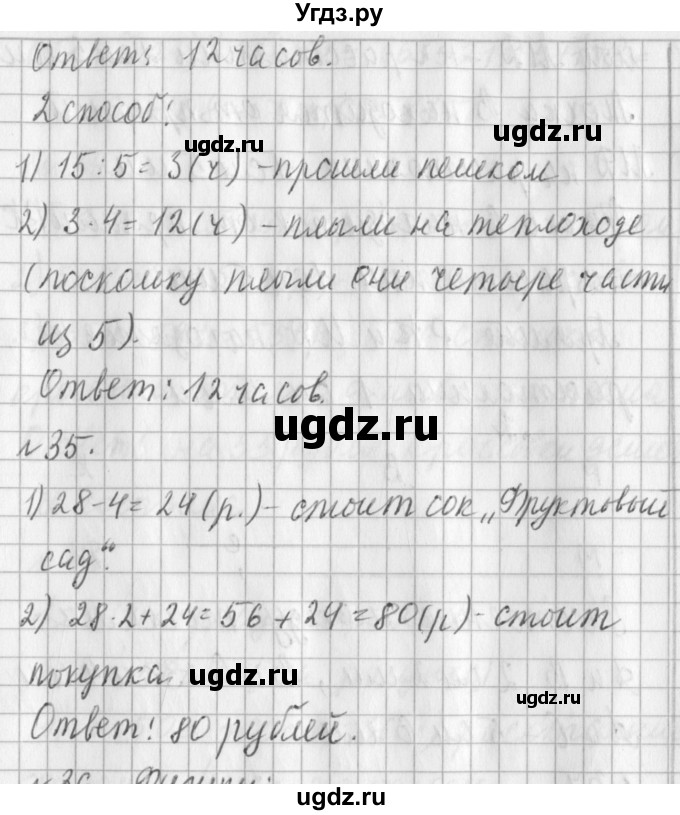 Угдз.ру
Ответ: 12 часов.
2 способ:
ugdz.ru
1) 15 : 5 = 3 (ч) - прошли пешком
2) 3 · 4 = 12 (ч) - плыли на теплоходе
(поскольку плыли они четыре части
из 5).
Ответ: 12 часов.
ugdz.ru
№35.
1) 28 - 4 = 24 (р.) - стоит сок „Фруктовый
сад“.
2) 28 · 2 + 24 = 56 + 24 = 80 (р) - стоит
покупка.
ugdz.ru
ugdz.ru
Ответ: 80 рублей.
ugdz.ru